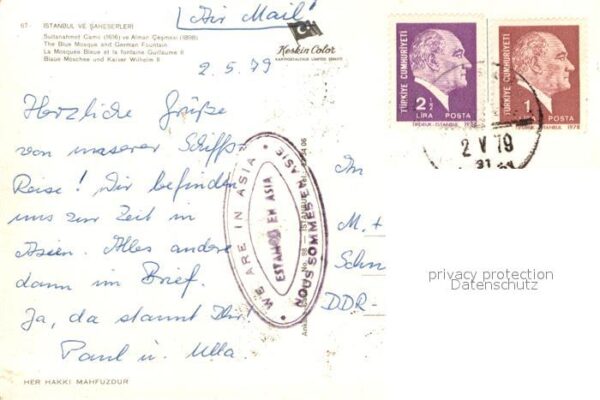 67 - ISTANBUL VE ŞAHESERLERİ
Sultanahmet Camii (1616) ve Alman Çeşmesi (1898)
The Blue Mosque and German Fountain
La Mosquée Bleue et la fontaine Guillaume II
Blaue Moschee und Kaiser Wilhelm II
[Air Mail]
Keskin Color
KARTPOSTALCILIK LIMITED ŞIRKETI
TÜRKİYE CUMHURİYETİ
2½
LİRA POSTA
1978
TÜRKİYE CUMHURİYETİ
1
POSTA
1978
2 V 79
2.5.79
Herzliche Grüße
von unserer Schiffs-
Reise! Wir befinden
uns zur Zeit in
Asien. Alles andere
dann im Brief.
Ja, da staunt Ihr!
Paul u. Ulla.
WE ARE IN ASIA
NOUS SOMMES EN ASIE
ESTAMOS EN ASIA
No. 98 - ISTANBUL
Ankara
An
M. +
Schn
DDR-
privacy protection
Datenschutz
HER HAKKI MAHFUZDUR